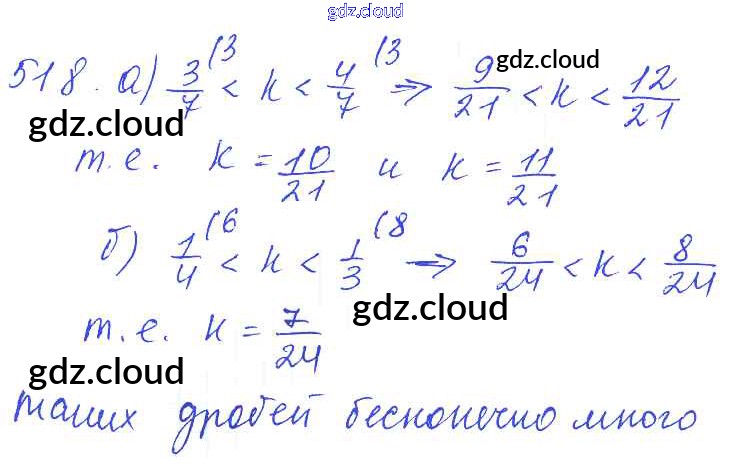 gdz.cloud
518. а) 3/7 (3 < к < 4/7 (3 => 9/21 < к < 12/21
gdz.cloud
gdz.cloud
т.е. к = 10/21 и к = 11/21
б) 1/4 (6 < к < 1/3 (8 → 6/24 < к < 8/24
gdz.cloud
т.е. к = 7/24
gdz.cloud
таких дробей бесконечно много